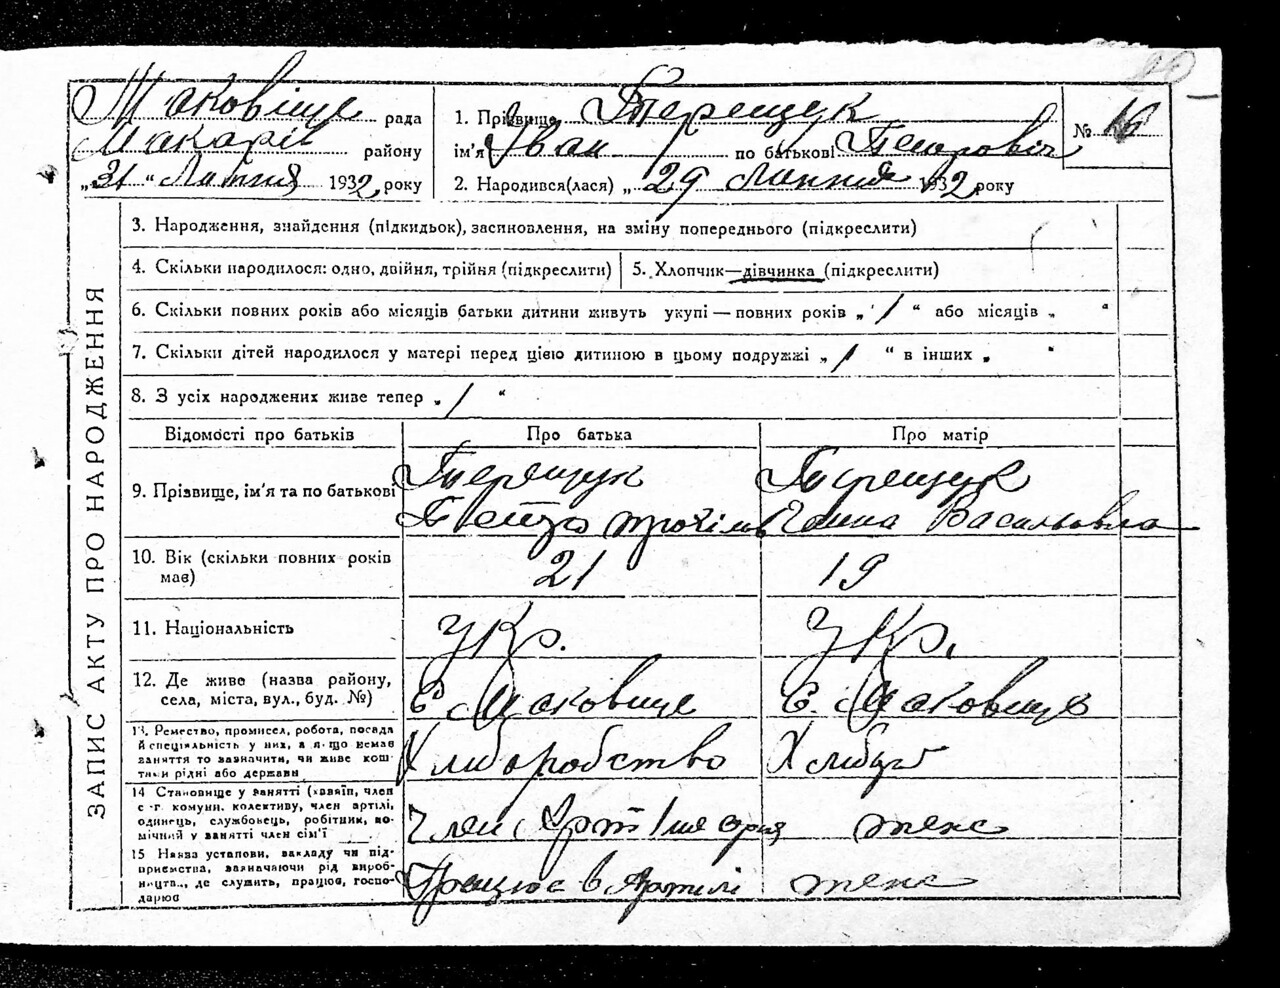 Маковіще рада
Макарів району
„31“ Липня 1932 року
1. Прізвище Терещук
ім'я Іван по батькові Петровіч
2. Народився(лася) „29 Липня 1932 року
№ 16
ЗАПИС АКТУ ПРО НАРОДЖЕННЯ
3. Народження, знайдення (підкидьок), засиновлення, на зміну попереднього (підкреслити)
4. Скільки народилося: одно, двійня, трійня (підкреслити) 5. Хлопчик—дівчинка (підкреслити)
6. Скільки повних років або місяців батьки дитини живуть укупі — повних років „ 1 “ або місяців „ “
7. Скільки дітей народилося у матері перед цією дитиною в цьому подружжі „ 1 “ в інших „ “
8. З усіх народжених живе тепер „ 1 “
Відомості про батьків Про батька Про матір
9. Прізвище, ім'я та по батькові
Терещук Терещук
Петро Ганна Васильовна
10. Вік (скільки повних років має) 21 19
11. Національність Укр. Укр.
12. Де живе (назва району, села, міста, вул., буд. №) С. Маковище С. Маковище
13. Ремество, промисел, робота, посада
й спеціяльність у них, а якщо немає
заняття то зазначити, чи живе кош-
тами рідні або держави
Хлиборобство Хлибор
14 Становище у занятті (хазяїн, член
с.-г. комуни, колективу, член артілі,
одинець, службовець, робітник, по-
мічний у занятті член сім'ї
Член Арт теж
15 Назва установи, закладу чи під-
приємства, зазначаючи рід вироб-
ництва, де служить, працює, госпо-
дарює
Працює в Артилі теж